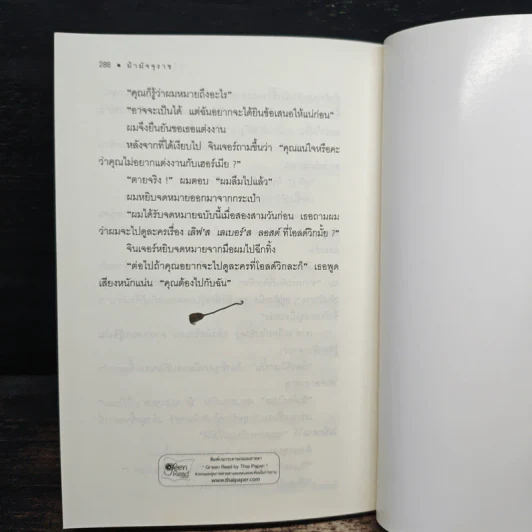 288 • ม้ามัจจุราช
“คุณก็รู้ว่าผมหมายถึงอะไร”
“อาจจะเป็นได้ แต่ฉันอยากจะได้ยินข้อเสนอให้แน่ก่อน”
ผมจึงยืนยันขอเธอแต่งงาน
หลังจากที่ได้เงียบไป จินเจอร์ถามขึ้นว่า “คุณแน่ใจหรือคะ
ว่าคุณไม่อยากแต่งงานกับเฮอร์เมีย ?”
“ตายจริง !” ผมตอบ “ผมลืมไปแล้ว”
ผมหยิบจดหมายออกมาจากกระเป๋า
“ผมได้รับจดหมายฉบับนี้เมื่อสองสามวันก่อน เธอถามผม
ว่าผมจะไปดูละครเรื่อง เลิฟ'ส เลเบอร์'ส ลอสต์ ที่โอลด์วิกมั้ย ?”
จินเจอร์หยิบจดหมายจากมือผมไปฉีกทิ้ง
“ต่อไปถ้าคุณอยากจะไปดูละครที่โอลด์วิกละก็” เธอพูด
เสียงหนักแน่น “คุณต้องไปกับฉัน”
Green
Read
พิมพ์บนกระดาษถนอมสายตา
" Green Read by Thai Paper "
www.thaipaper.com